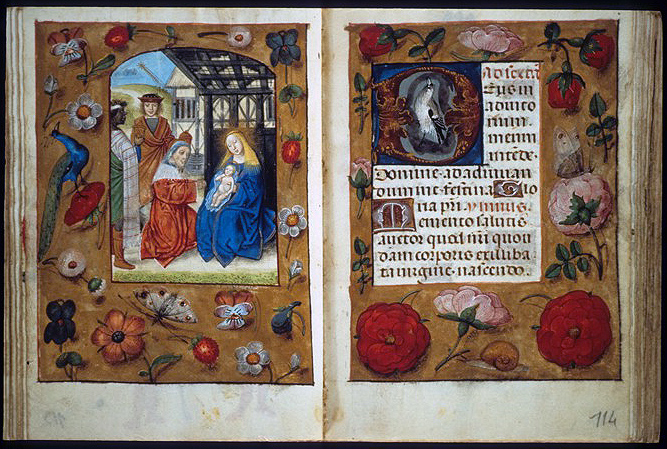 Ad sextã
Deus in
adiuto
rium
meum
intẽde.
Domine ad adiuuan
dum me festina. Glo
ria pr̃i. ymnus
Memento salutis
auctor quod nr̃i quon
dam corporis ex iliba
ta uirgine nascendo.
114